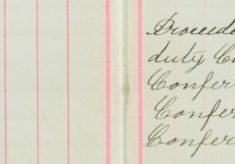 Proceed
duty C
Confer
Confer
Confer